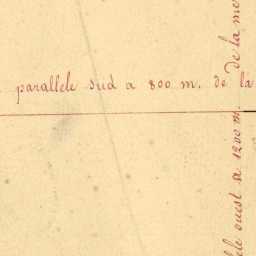 parallele sud a 800 m. de la
ouest a 1200 m. De la me